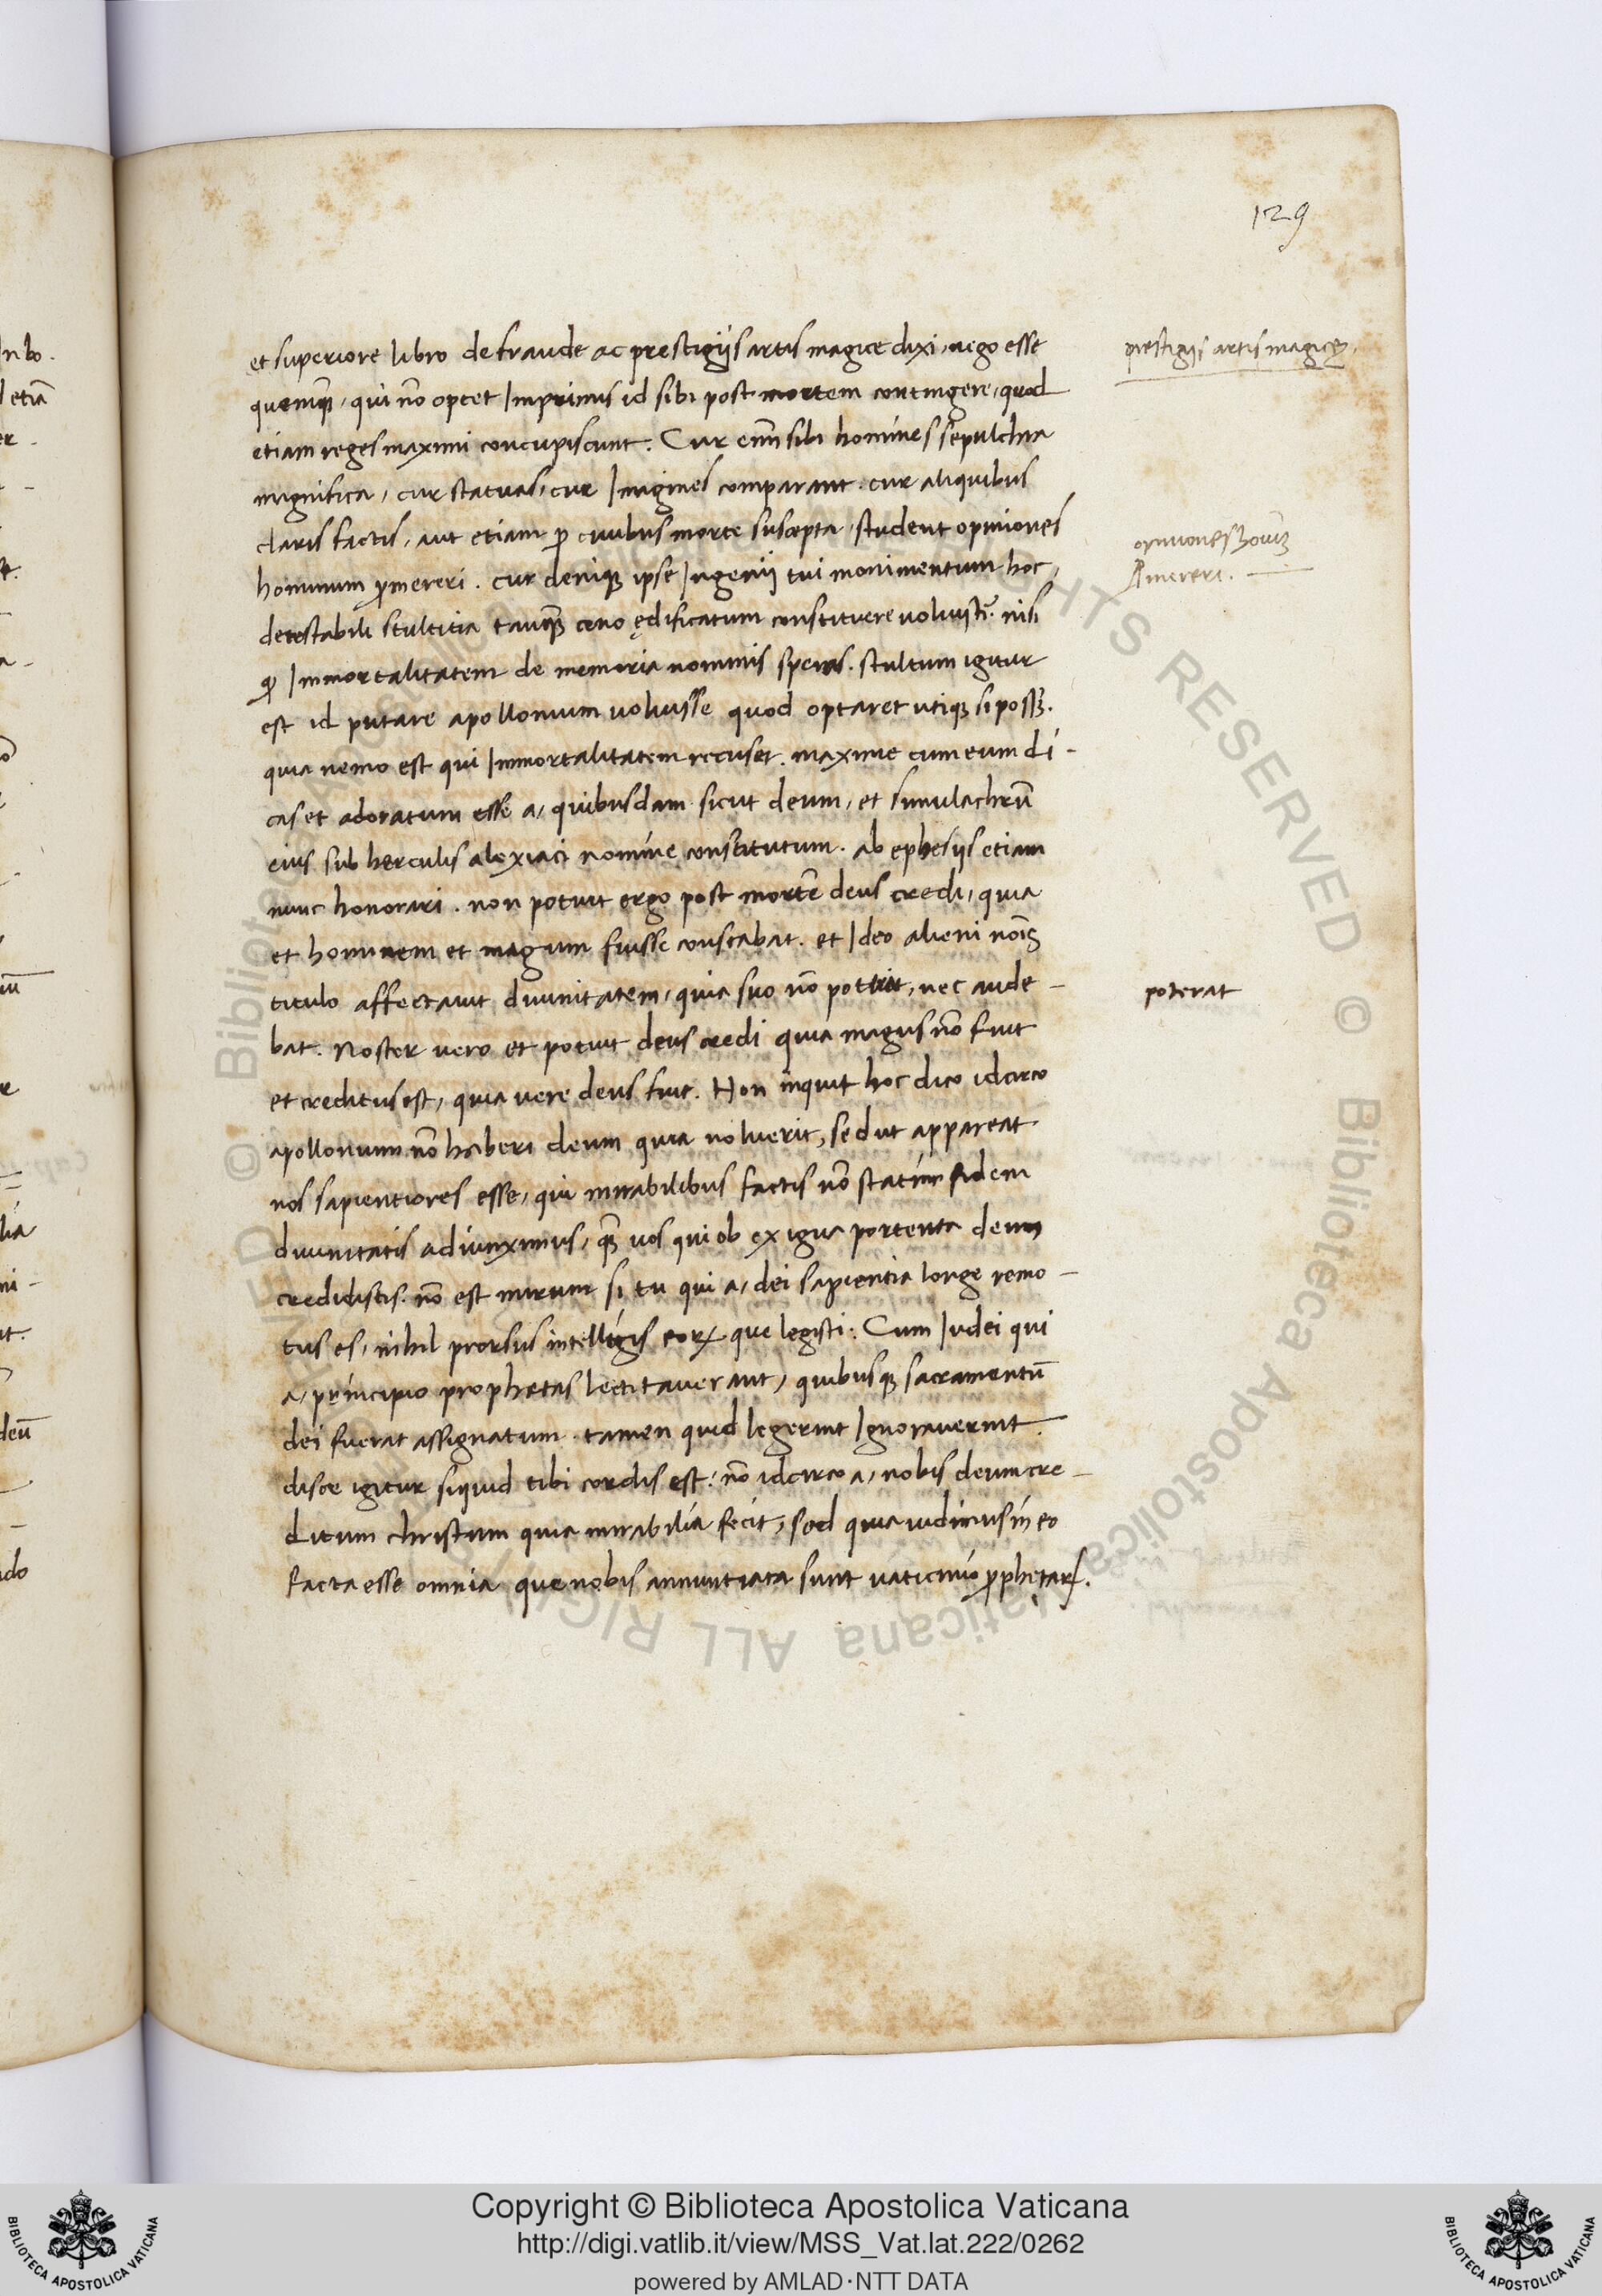 129
et superiore libro de fraude ac prestigijs artis magice dixi, nego esse
quemq̃, qui nõ optet Inprimis id sibi post mortem contingere, quod
etiam reges maximi concupiscunt. Cur enĩ sibi homines sepulchra
magnifica, cur statuas, cur Imagines comparant. cur aliquibus
claris factis, aut etiam ꝓ ciuibus morte suscepta, student opiniones
hominum ꝓmereri. cur deniqꝫ ipse Ingenij tui monimentum hoc,
detestabili stultitia tanq̃ ceno ędificatum constituere voluisti? nisi
ꝙ Immortalitatem de memoria nominis speras. stultum igitur
est id putare apollonium voluisse quod optaret utiqꝫ si possꝫ.
quia nemo est qui Immortalitatem recuset. maxime cum eum di-
cas et adoratum esse a, quibusdam sicut deum, et simulachrũ
eius sub herculis alexiaci nomine constitutum. ab ephesijs etiam
nunc honorari. non potuit ergo post mortẽ deus credi, quia
et hominem et magum fuisse constabat. et Ideo alieni nõis
titulo affectauit diuinitatem, quia suo nõ potuit, nec aude-
bat. Noster vero et potuit deus credi quia magus nõ fuit
et creditus est, quia vere deus fuit. Non inquit hoc dico idcirco
apollonium nõ haberi deum quia noluerit, sed ut appareat
nos sapientiores esse, qui mirabilibus factis nõ statim fidem
diuinitatis adiunximus, q̃ vos qui ob exigua portenta deum
credidistis. nõ est mirum si tu qui a, dei sapientia longe remo-
tus es, nihil prorsus intelligis eorꝝ que legisti. Cum Iudei qui
a, principio prophetas lectitauerant, quibusqꝫ sacramentũ
dei fuerat assignatum. tamen quid legerint Ignorauerint.
disce igitur siquid tibi cordis est. nõ idcirco a, nobis deum cre-
ditum christum quia mirabilia fecit, sed quia vidimus in eo
facta esse omnia que nobis annuntiata sunt vaticinio ꝓphetarꝝ.
prestigijs artis magicę.
opiniones hoĩuꝫ
ꝓmereri.
poterat
Copyright © Biblioteca Apostolica Vaticana
http://digi.vatlib.it/view/MSS_Vat.lat.222/0262
powered by AMLAD·NTT DATA
BIBLIOTECA APOSTOLICA VATICANA
BIBLIOTECA APOSTOLICA VATICANA